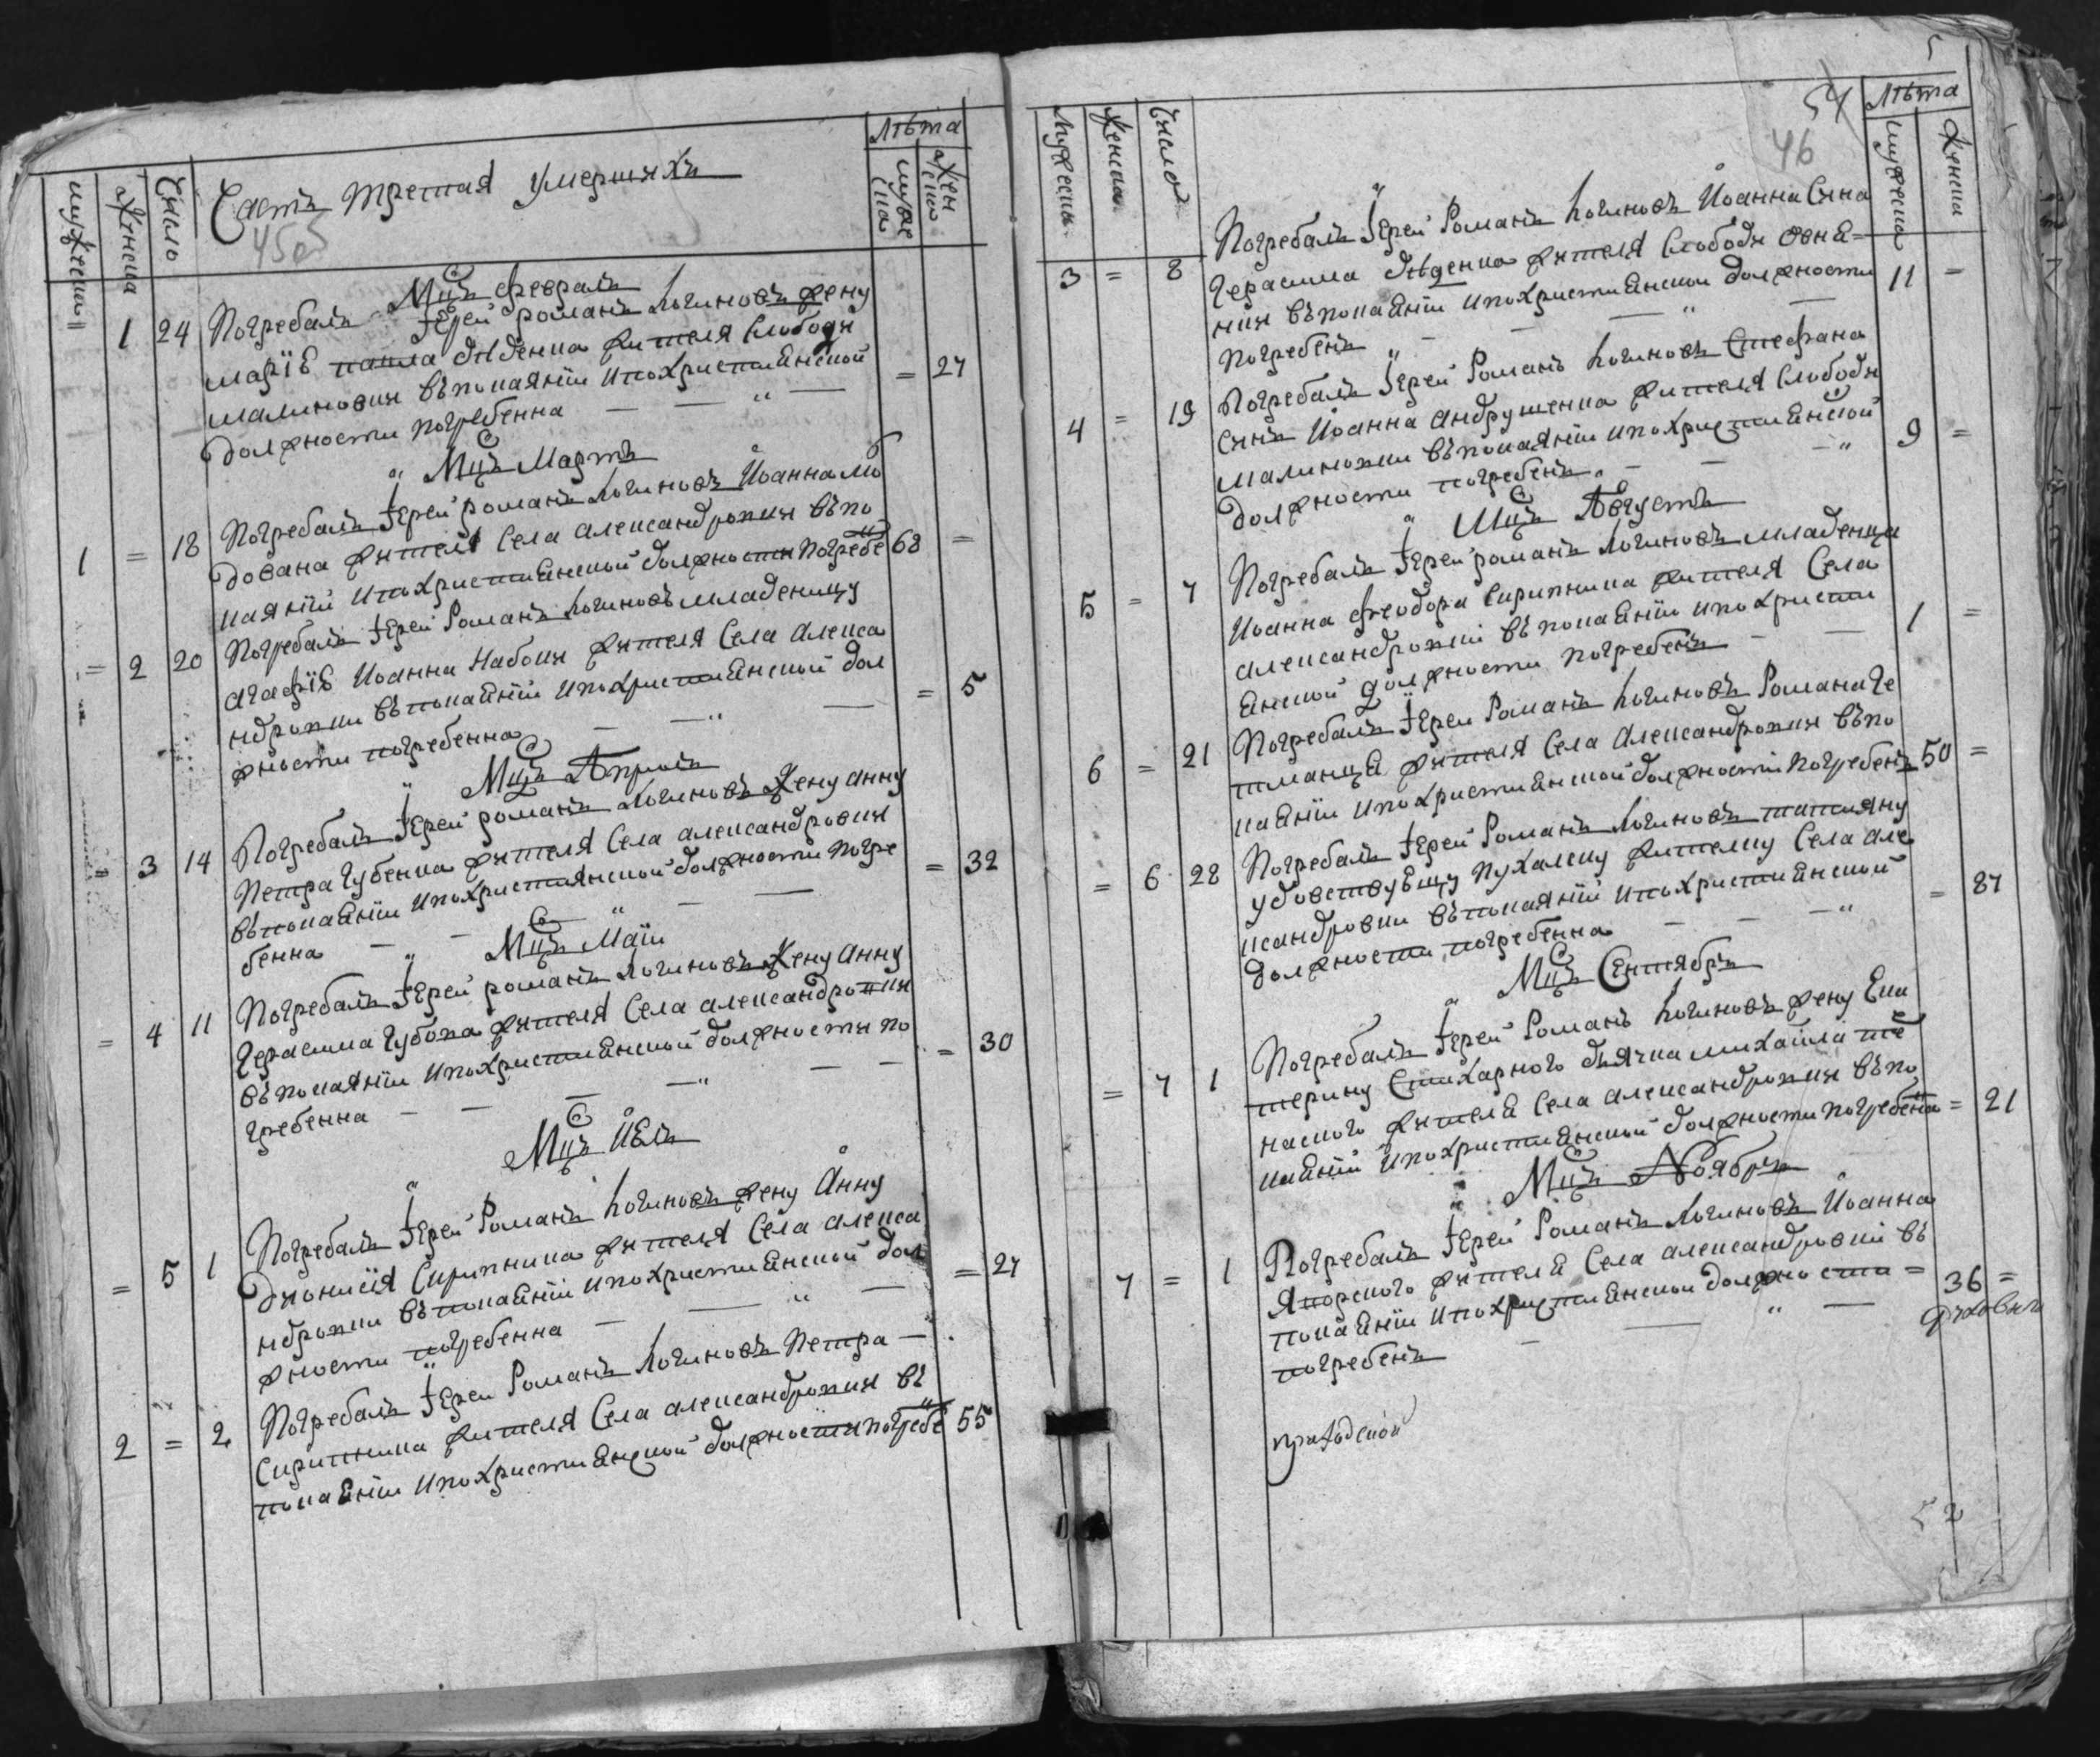 Лѣта
мужеска
Женска
Число
Часть третая умершихъ
45об
мужеска
женска
Мцъ февраль
= 1 24 Погребалъ Іерей романъ Логиновъ жену
Марїѣ павла дѣденка жителя Слободы
малиновки въ покаянїи и по Христианской = 27
должности погребенна
Мцъ Мартъ
1 = 18 Погребалъ Іерей романъ Логиновъ Иоанна Мо
дована жителя Села александровки въ по
каянїи и по христианской должности погребе 68 =
= 2 20 Погребалъ Іерей Романъ Логиновъ младеницу
агафїѣ Иоанна Набоки жителя Села алекса
ндровки въ покаянїи и по христианской дол = 5
жности погребенна
Мцъ Априлъ
= 3 14 Погребалъ Іерей романъ Логиновъ Жену анну
Петра Губенка жителя Села александровки
въ покаянїи и по христианской должности погре = 32
бенна
Мцъ Маїи
= 4 11 Погребалъ Іерей романъ Логиновъ Жену анну
Герасима Губока жителя Села александровки
въ покаянїи и по христианской должности по = 30
гребенна
Мцъ
= 5 1 Погребалъ Іерей Романъ Логиновъ жену Анну
Дионисїя Скрипника жителя Села алекса
ндровки въ покаянїи и по христианской дол = 27
жности погребенна
2 = 2 Погребалъ Іерей Романъ Логиновъ Петра
Скрипника жителя Села александровки въ
покаянїи и по христианской должности погребе 55
54
46
Лѣта
Мужеска
Женска
Число
мужеска
Женска
3 = 8 Погребалъ Іерей Романъ Логиновъ Иоанна Сына
Герасима дѣденка жителя Слободы
въ покаянїи и по христианской должности 11 =
погребенъ
4 = 19 Погребалъ Іерей Романъ Логиновъ Стефана
Сынъ Иоанна андрушенка жителя Слободы
малиновки въ покаянїи и по христианской 9 =
должности погребенъ
Мцъ Августъ
5 = 7 Погребалъ Іерей романъ Логиновъ младенца
Иоанна феодора Скрипника жителя Села
александровки въ покаянїи и по христи 1 =
анской должности погребенъ
6 = 21 Погребалъ Іерей Романъ Логиновъ Романа Ге
тманца жителя Села Александровки въ по
каянїи и по христианской должности погребенъ 50 =
= 6 28 Погребалъ Іерей Романъ Логиновъ татияну
удовствующу Пухалску жителку Села але
ксандровки въ покаянїи и по христианской = 87
должности погребенна
Мцъ Сентябръ
= 7 1 Погребалъ Іерей Романъ Логиновъ жену Ека
терину Стихарного дьячка михаила
жителя Села александровки въ по
каянїи и по христианской должности погребена = 21
Мцъ Ноябръ
7 = 1 Погребалъ Іерей Романъ Логиновъ Иоанна
Яворского жителя Села александровки въ
покаянїи и по христианской должности = 36 =
погребенъ
приходской